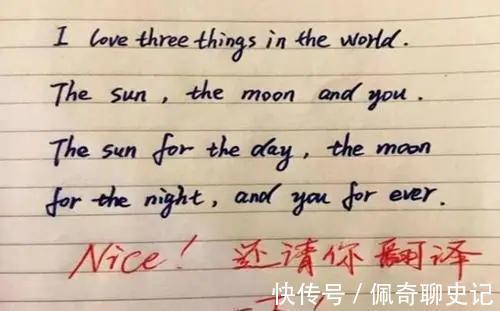 I love three things in the world.
The sun, the moon and you.
The sun for the day, the moon
for the night, and you for ever.
Nice! 还请你翻译
快传号 / 佩奇聊史记